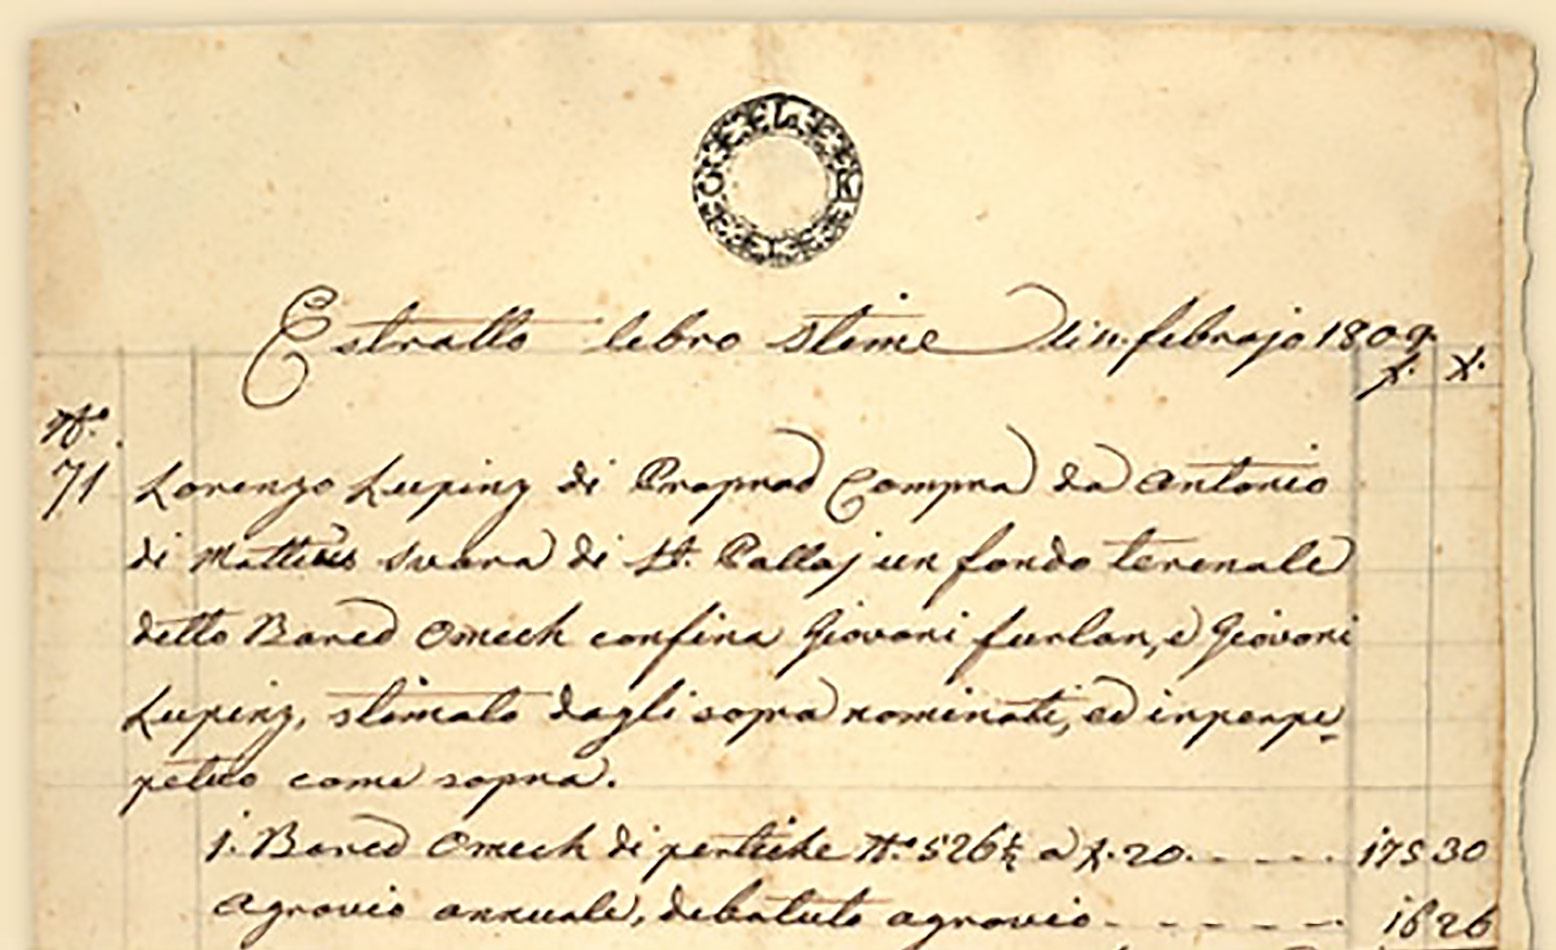 Estratto lebro stime di 11. febrajo 1809.
f. x.
N.°
71 Lorenzo Lupinz di Praprad Compra da Antonio
di Suara di S.t Pollaj un fondo terenale
detto Bared Omech confina Giovani furlan, e Giovani
Lupinz, stimato dagli sopra nominati, ed inperpe
petuo come sopra.
1. Bared Omech di pertiche N.° 526½ a x. 20. - - - - 175 30
agravio annuale, debatuto agravio - - - - - 16 26